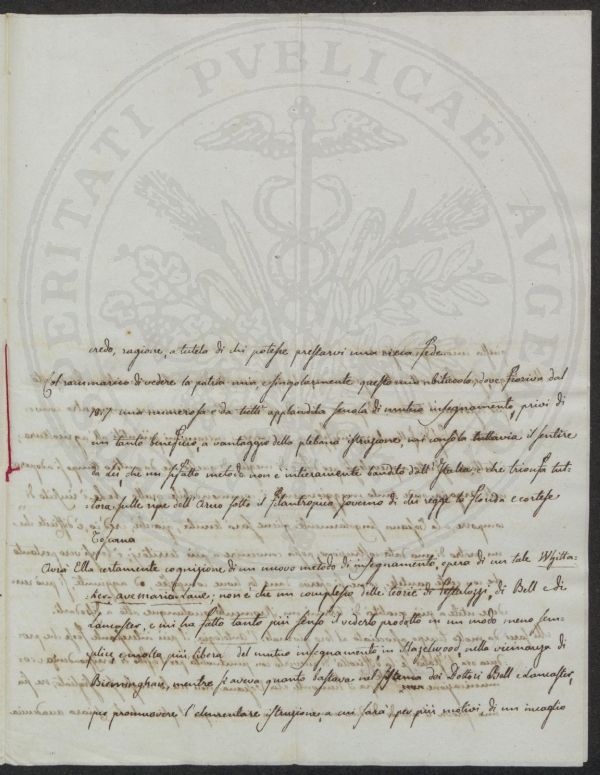 PROSPERITATI PVBLICAE AVGE
credo, ragione, a tutela di chi potesse prestarvi una cieca fede.
Col rammarico di vedere la patria mia e singolarmente questo mio abitacolo, dove fioriva dal
1817 una numerosa e da tutti applaudita scuola di mutuo insegnamento, privi di
un tanto beneficio, a vantaggio della plebana istruzione, mi consola tuttavia il sentire
da Lei, che un siffatto metodo non è intieramente bandito dall'Italia, e che trionfa tut-
tora sulle rive dell'Arno sotto il filantropico Governo di chi regge la florida e cortese
Toscana
Avrà Ella certamente cognizione di un nuovo metodo di insegnamento, opera di un tale
ave maria Lane; non è che un complesso delle teorie di Pestalozzi, di Bell e di
Lancaster, e mi ha fatto tanto più senso il vederlo prodotto in un modo meno sem-
plice e molto più libera del mutuo insegnamento in Hazelwood, nella vicinanza di
Birmingham, mentre si aveva quanto bastava nel sistema dei Dottori Bell e Lancaster,
per promuovere l'elementare istruzione, a cui sarà, per più motivi, di un incaglio